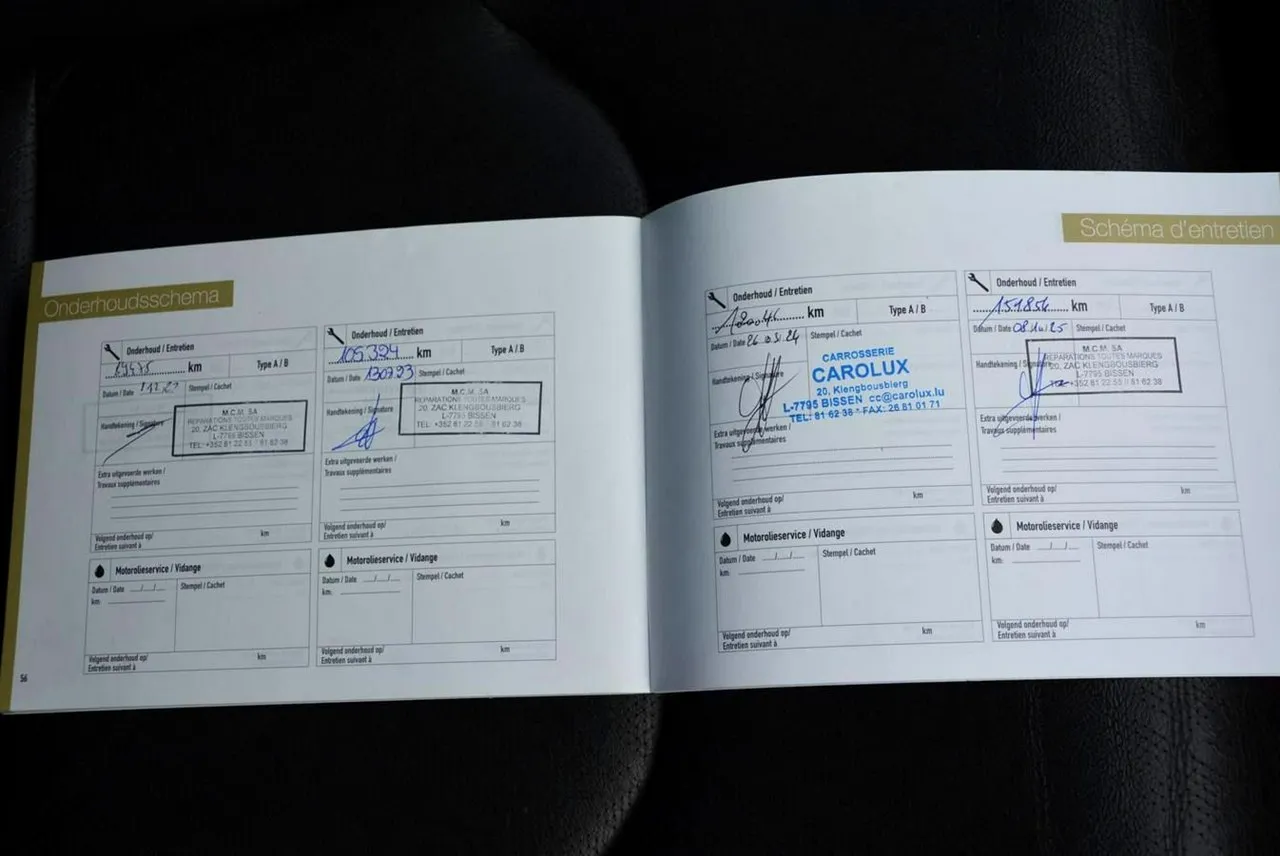 Onderhoudsschema
Onderhoud / Entretien
km Type A / B
Datum / Date Stempel / Cachet
Handtekening / Signature
M.C.M. SA
REPARATIONS TOUTES MARQUES
20, ZAC KLENGBOUSBIERG
L-7795 BISSEN
TEL: +352 81 22 55 / 81 62 38
Extra uitgevoerde werken /
Travaux supplémentaires
Volgend onderhoud op/
Entretien suivant à km
Motorolieservice / Vidange
Datum / Date __/__/__ Stempel / Cachet
km:
Volgend onderhoud op/
Entretien suivant à km
Onderhoud / Entretien
105 324 km Type A / B
Datum / Date 130723 Stempel / Cachet
Handtekening / Signature
M.C.M. SA
REPARATIONS TOUTES MARQUES
20, ZAC KLENGBOUSBIERG
L-7795 BISSEN
TEL: +352 81 22 55 / 81 62 38
Extra uitgevoerde werken /
Travaux supplémentaires
Volgend onderhoud op/
Entretien suivant à km
Motorolieservice / Vidange
Datum / Date __/__/__ Stempel / Cachet
km:
Volgend onderhoud op/
Entretien suivant à km
56
Schéma d'entretien
Onderhoud / Entretien
km Type A / B
Datum / Date Stempel / Cachet
Handtekening / Signature
CARROSSERIE
CAROLUX
20, Klengbousbierg
L-7795 BISSEN cc@carolux.lu
TEL: 81 62 38 * FAX: 26 81 01 71
Extra uitgevoerde werken /
Travaux supplémentaires
Volgend onderhoud op/
Entretien suivant à km
Motorolieservice / Vidange
Datum / Date __/__/__ Stempel / Cachet
km:
Volgend onderhoud op/
Entretien suivant à km
Onderhoud / Entretien
151854 km Type A / B
Datum / Date Stempel / Cachet
Handtekening / Signature
M.C.M. SA
REPARATIONS TOUTES MARQUES
20, ZAC KLENGBOUSBIERG
L-7795 BISSEN
TEL: +352 81 22 55 / 81 62 38
Extra uitgevoerde werken /
Travaux supplémentaires
Volgend onderhoud op/
Entretien suivant à km
Motorolieservice / Vidange
Datum / Date __/__/__ Stempel / Cachet
km:
Volgend onderhoud op/
Entretien suivant à km